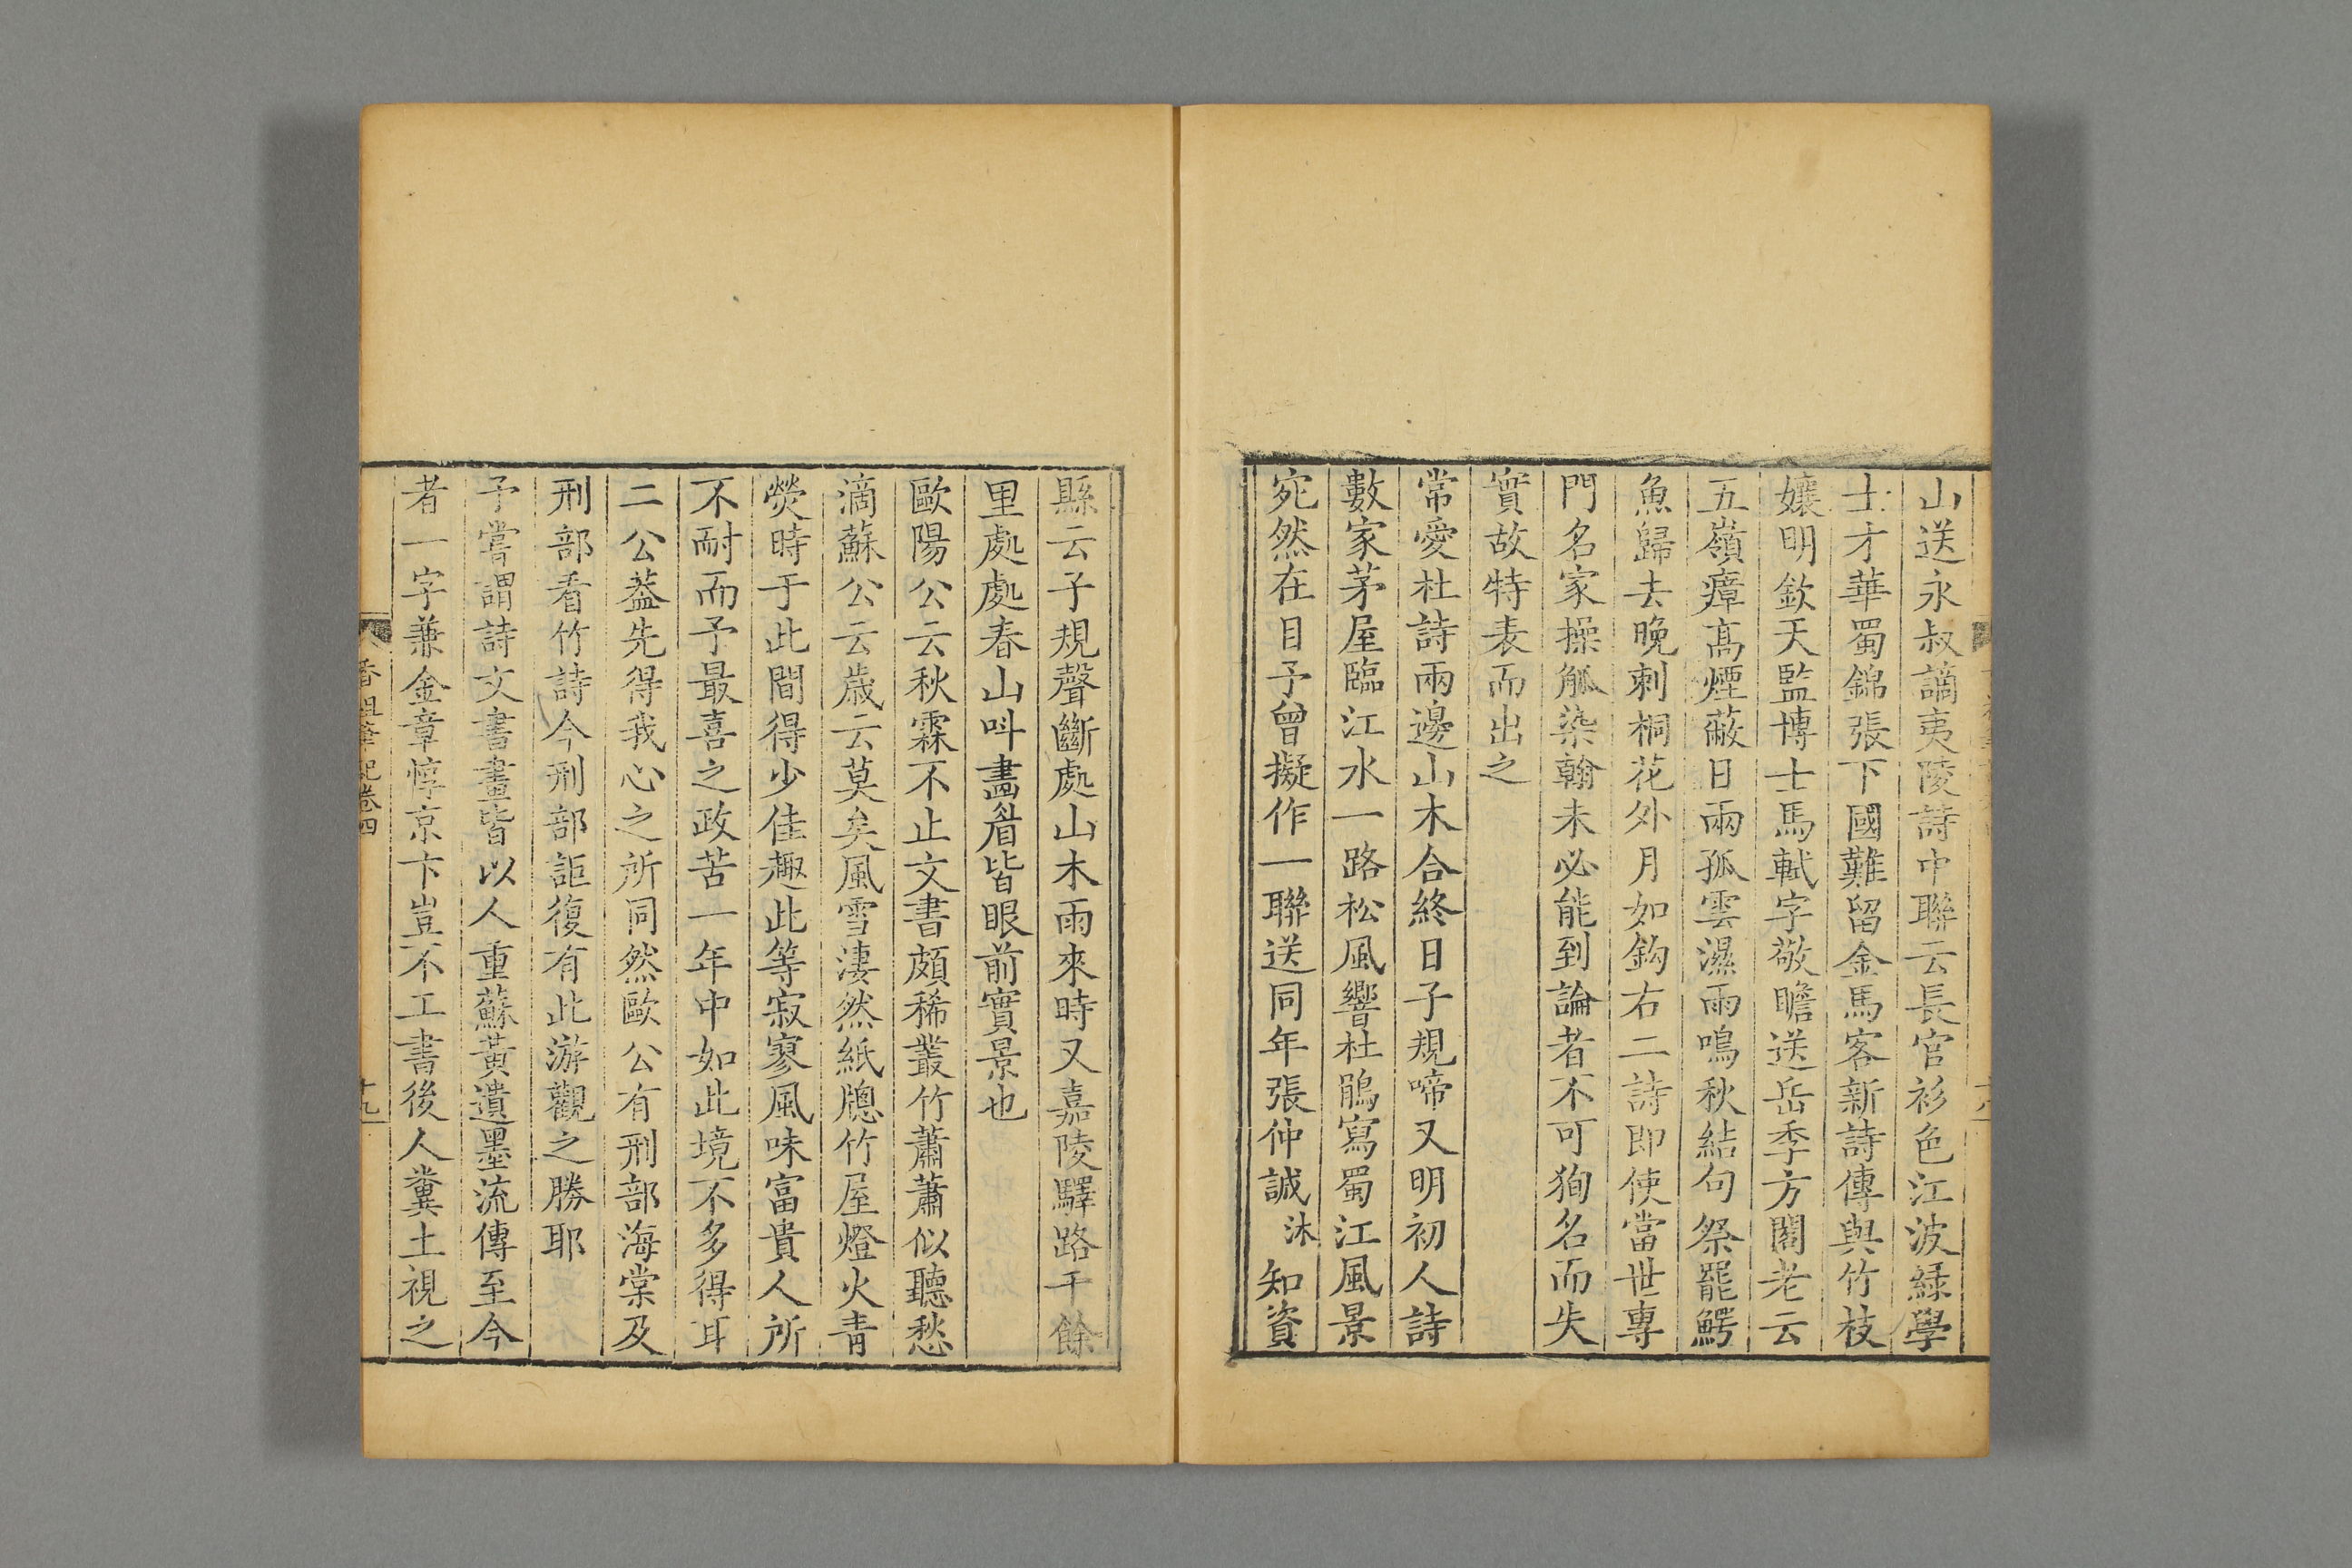 山送永叔謫夷陵詩中聯云長官衫色江波綠學
士才華蜀錦張下國難留金馬客新詩傳與竹枝
孃明欽天監博士馬軾字敬瞻送岳季方閣老云
五嶺瘴高煙蔽日兩孤雲濕雨鳴秋結句祭罷鱷
魚歸去晚刺桐花外月如鈎右二詩即使當世專
門名家操觚染翰未必能到論者不可狥名而失
實故特表而出之
常愛杜詩兩邊山木合終日子規啼又明初人詩
數家茅屋臨江水一路松風響杜鵑寫蜀江風景
宛然在目予曾擬作一聯送同年張仲誠沐知資
縣云子規聲斷處山木雨來時又嘉陵驛路千餘
里處處春山呌畵眉皆眼前實景也
歐陽公云秋霖不止文書頗稀叢竹蕭蕭似聽愁
滴蘇公云歲云莫矣風雪淒然紙牎竹屋燈火青
熒時于此間得少佳趣此等寂寥風味富貴人所
不耐而予最喜之政苦一年中如此境不多得耳
二公葢先得我心之所同然歐公有刑部海棠及
刑部看竹詩今刑部詎復有此游觀之勝耶
予嘗謂詩文書畫皆以人重蘇黃遺墨流傳至今
者一字兼金章惇京卞豈不工書後人糞土視之
香祖筆記卷四
十九